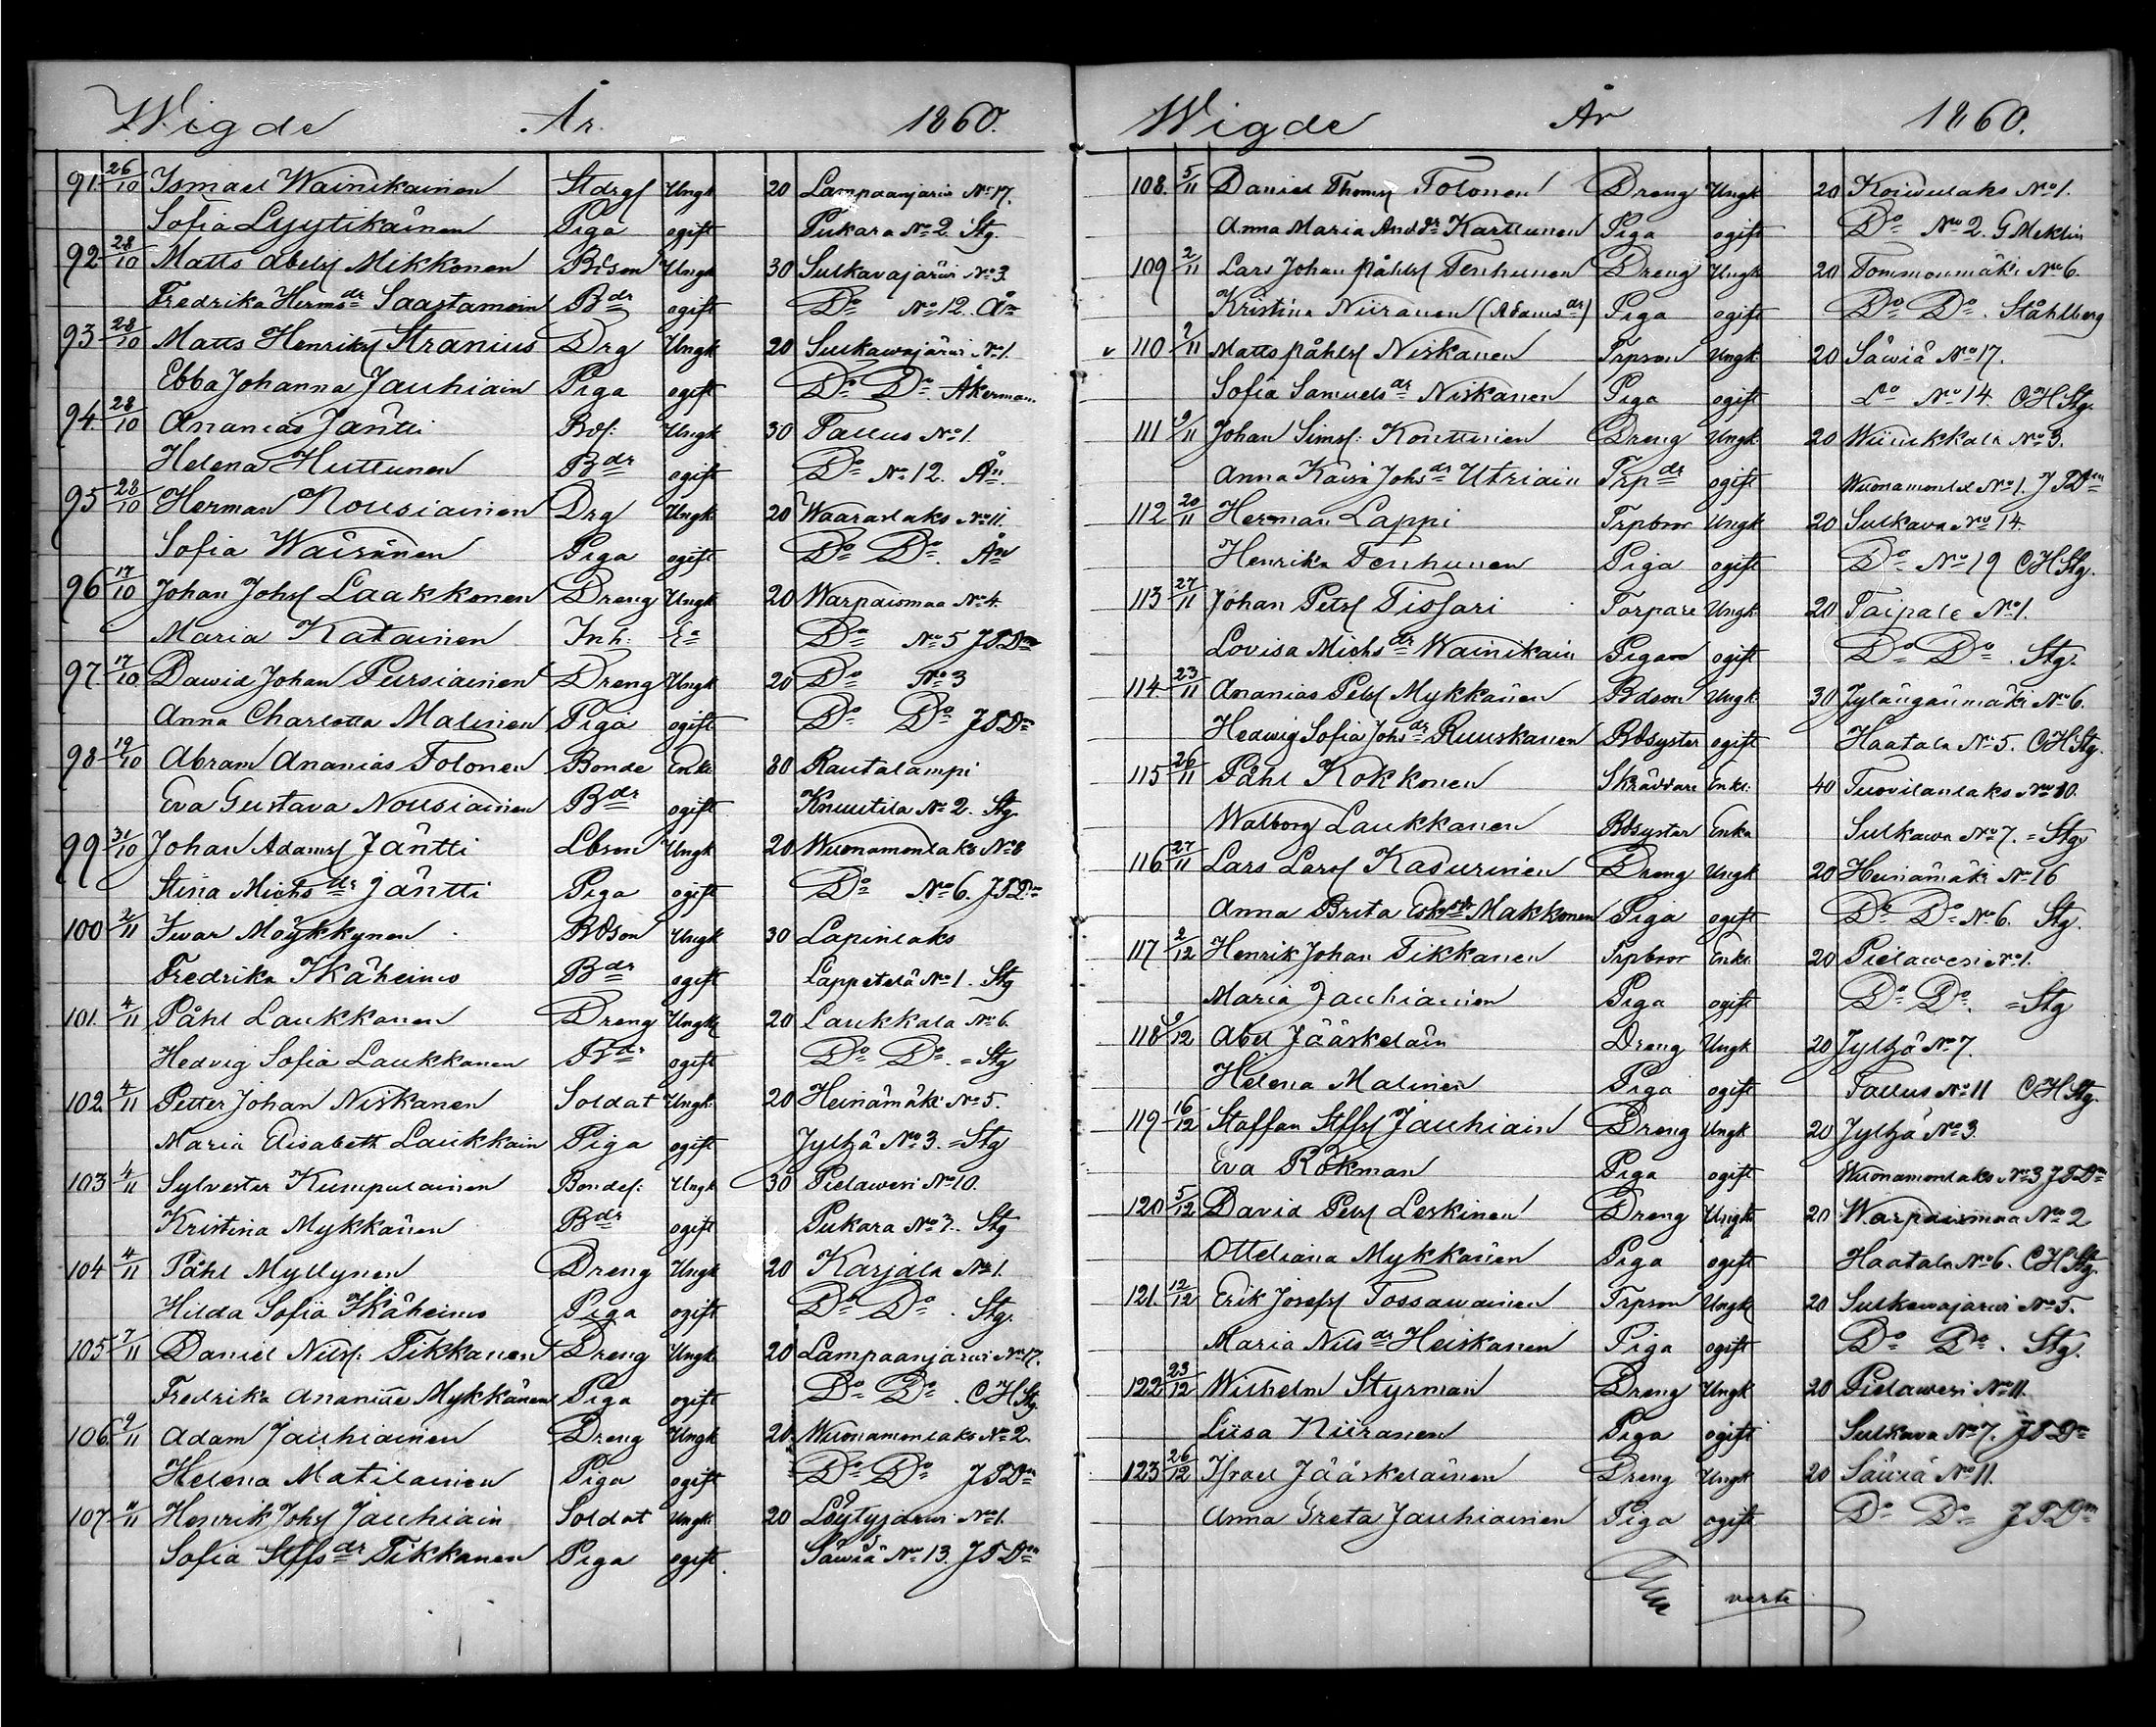 Wigde År. 1860.
91. 26/10 Ismael Wainikainen Stdrgs Ungk 20 Lampaanjärvi No 17.
Sofia Lyytikäinen Piga ogift Pukara No 2. Stg.
92 28/10 Matts Abels Mikkonen Bdson Ungk 30 Sulkavajärvi No 3
Fredrika Hermsdr Saastamoin Bdr ogift Do No 12. Ån
93 28/10 Matts Henriks Stranius Drg Ungk 20 Sulkawajärvi No 1.
Ebba Johanna Jauhiain Piga ogift Do Do. Åkerman.
94 28/10 Ananias Jäntti Bds: Ungk 30 Tallus No 1.
Helena Huttunen Bdr ogift Do No 12. Ån.
95 28/10 Herman Nousiainen Drg Ungk 20 Waaraslaks No 11.
Sofia Wäisänen Piga ogift Do Do. Ån
96 17/10 Johan Johs Laakkonen Dreng Ungk 20 Warpaismaa No 4.
Maria Katainen Inh: Ea Do No 5 JTDm
97. 17/10 Dawid Johan Pursiainen Dreng Ungk 20 Do No 3
Anna Charlotta Malinen Piga ogift Do Do JTDm
98 19/10 Abram Ananias Tolonen Bonde Enkl 30 Rautalampi
Eva Gustava Nousiainen Bdr ogift Knuutila No 2. Stg.
99 31/10 Johan Adams Jäntti Lbson Ungk 20 Wuonamonlaks No 8
Stina Michsdr Jäntti Piga ogift Do No 6. JTDm
100 2/11 Ivar Möykkynen Bdson Ungk 30 Lapinlaks
Fredrika Ikäheimo Bdr ogift Lappetelä No 1. Stg
101. 4/11 Påhl Laukkanen Dreng Ungk 20 Laukkala No 6.
Hedvig Sofia Laukkanen Bdr ogift Do Do. =Stg
102 4/11 Petter Johan Niskanen Soldat Ungk: 20 Heinämäki No 5.
Maria Elisabeth Laukkain Piga ogift Jylhä No 3. =Stg
103 4/11 Sylvester Kumpulainen Bondes: Ungk 30 Pielawesi No 10.
Kristina Mykkänen Bdr ogift Pukara No 3. Stg
104 4/11 Påhl Myllynen Dreng Ungk 20 Karjala No 1.
Hilda Sofia Ikäheimo Piga ogift Do Do. Stg.
105 7/11 Daniel Nils: Tikkanen Dreng Ungk 20 Lampaanjärvi No 17.
Fredrika Ananiae Mykkänen Piga ogift Do Do. CHStg.
106. 9/11 Adam Jauhiainen Dreng Ungk 20 Wuonamonlaks No 2.
Helena Matilainen Piga ogift Do Do JTDm
107 11/11 Henrik Johs Jauhiain Soldat Ungk 20 Löytyjärvi No 1.
Sofia Stffsdr Tikkanen Piga ogift. Säwiä No 13. JTDm
Wigde År 1860.
108. 5/11 Daniel Thoms Tolonen Dreng Ungk 20 Koivulaks No 1.
Anna Maria Anddr Karttunen Piga ogift Do No 2. GMeklin
109 2/11 Lars Johan Påhls Tenhunen Dreng Ungk 20 Tommonmäki No 6.
Kristina Niiranen (Adamsdr) Piga ogift Do Do. Ståhlberg
v 110 2/11 Matts Påhls Niskanen Trpson Ungk 20 Säwiä No 17.
Sofia Samuelsdr Niskanen Piga ogift Do No 14. CHStg.
111 9/11 Johan Sims: Konttinen Dreng Ungk 20 Wiinikkala No 3.
Anna Kaisa Johsdr Utriain Trpdr ogift Wuonamonlax No 1. JTDm
112 20/11 Herman Lappi Trpbror Ungk 20 Sulkava No 14.
Henrika Tenhunen Piga ogift Do No 19 CHStg.
113 27/11 Johan Pets Tissari Torpare Ungk 20 Taipale No 1.
Lovisa Michsdr Wainikain Pigan ogift Do Do. Stg.
114 23/11 Ananias Pets Mykkänen Bdson Ungk 30 Jylängänmäki No 6.
Hedwig Sofia Johsdr Ruuskanen Bdsyster ogift Haatala No 5. CHStg.
115 26/11 Påhl Kokkonen Skräddare Enkl: 40 Tuovilanlaks No 10.
Walborg Laukkanen Bdsyster Enka Sulkawa No 7. =Stg.
116 27/11 Lars Lars Kasurinen Dreng Ungk 20 Heinämäki No 16
Anna Brita Eskdr Makkonen Piga ogift Do Do No 6. Stg.
117. 2/12 Henrik Johan Tikkanen Trpbror Enkl. 20 Pielawesi No 1.
Maria Jauhiainen Piga ogift Do Do. =Stg
118 9/12 Abel Jääskeläin Dreng Ungk 20 Jylhä No 7.
Helena Malinen Piga ogift Tallus No 11 CHStg.
119 16/12 Staffan Stffs Jauhiain Dreng Ungk 20 Jylhä No 3.
Eva Rökman Piga ogift Wuonamonlaks No 3 JTDm
120 5/12 David Pets Leskinen Dreng Ungk 20 Warpaismaa No 2
Otteliana Mykkänen Piga ogift Haatala No 6. CHStg.
121. 12/12 Erik Josefs Tossawainen Trpson Ungk 20 Sulkawajärvi No 5.
Maria Nilsdr Heiskanen Piga ogift Do Do. Stg.
122 23/12 Wilhelm Styrman Dreng Ungk 20 Pielawesi No 11.
Liisa Niiranen Piga ogift Sulkava No 7. JTDm
123 26/12 Israel Jääskeläinen Dreng Ungk 20 Säwiä No 11.
Anna Greta Jauhiainen Piga ogift Do Do JTDm
verte